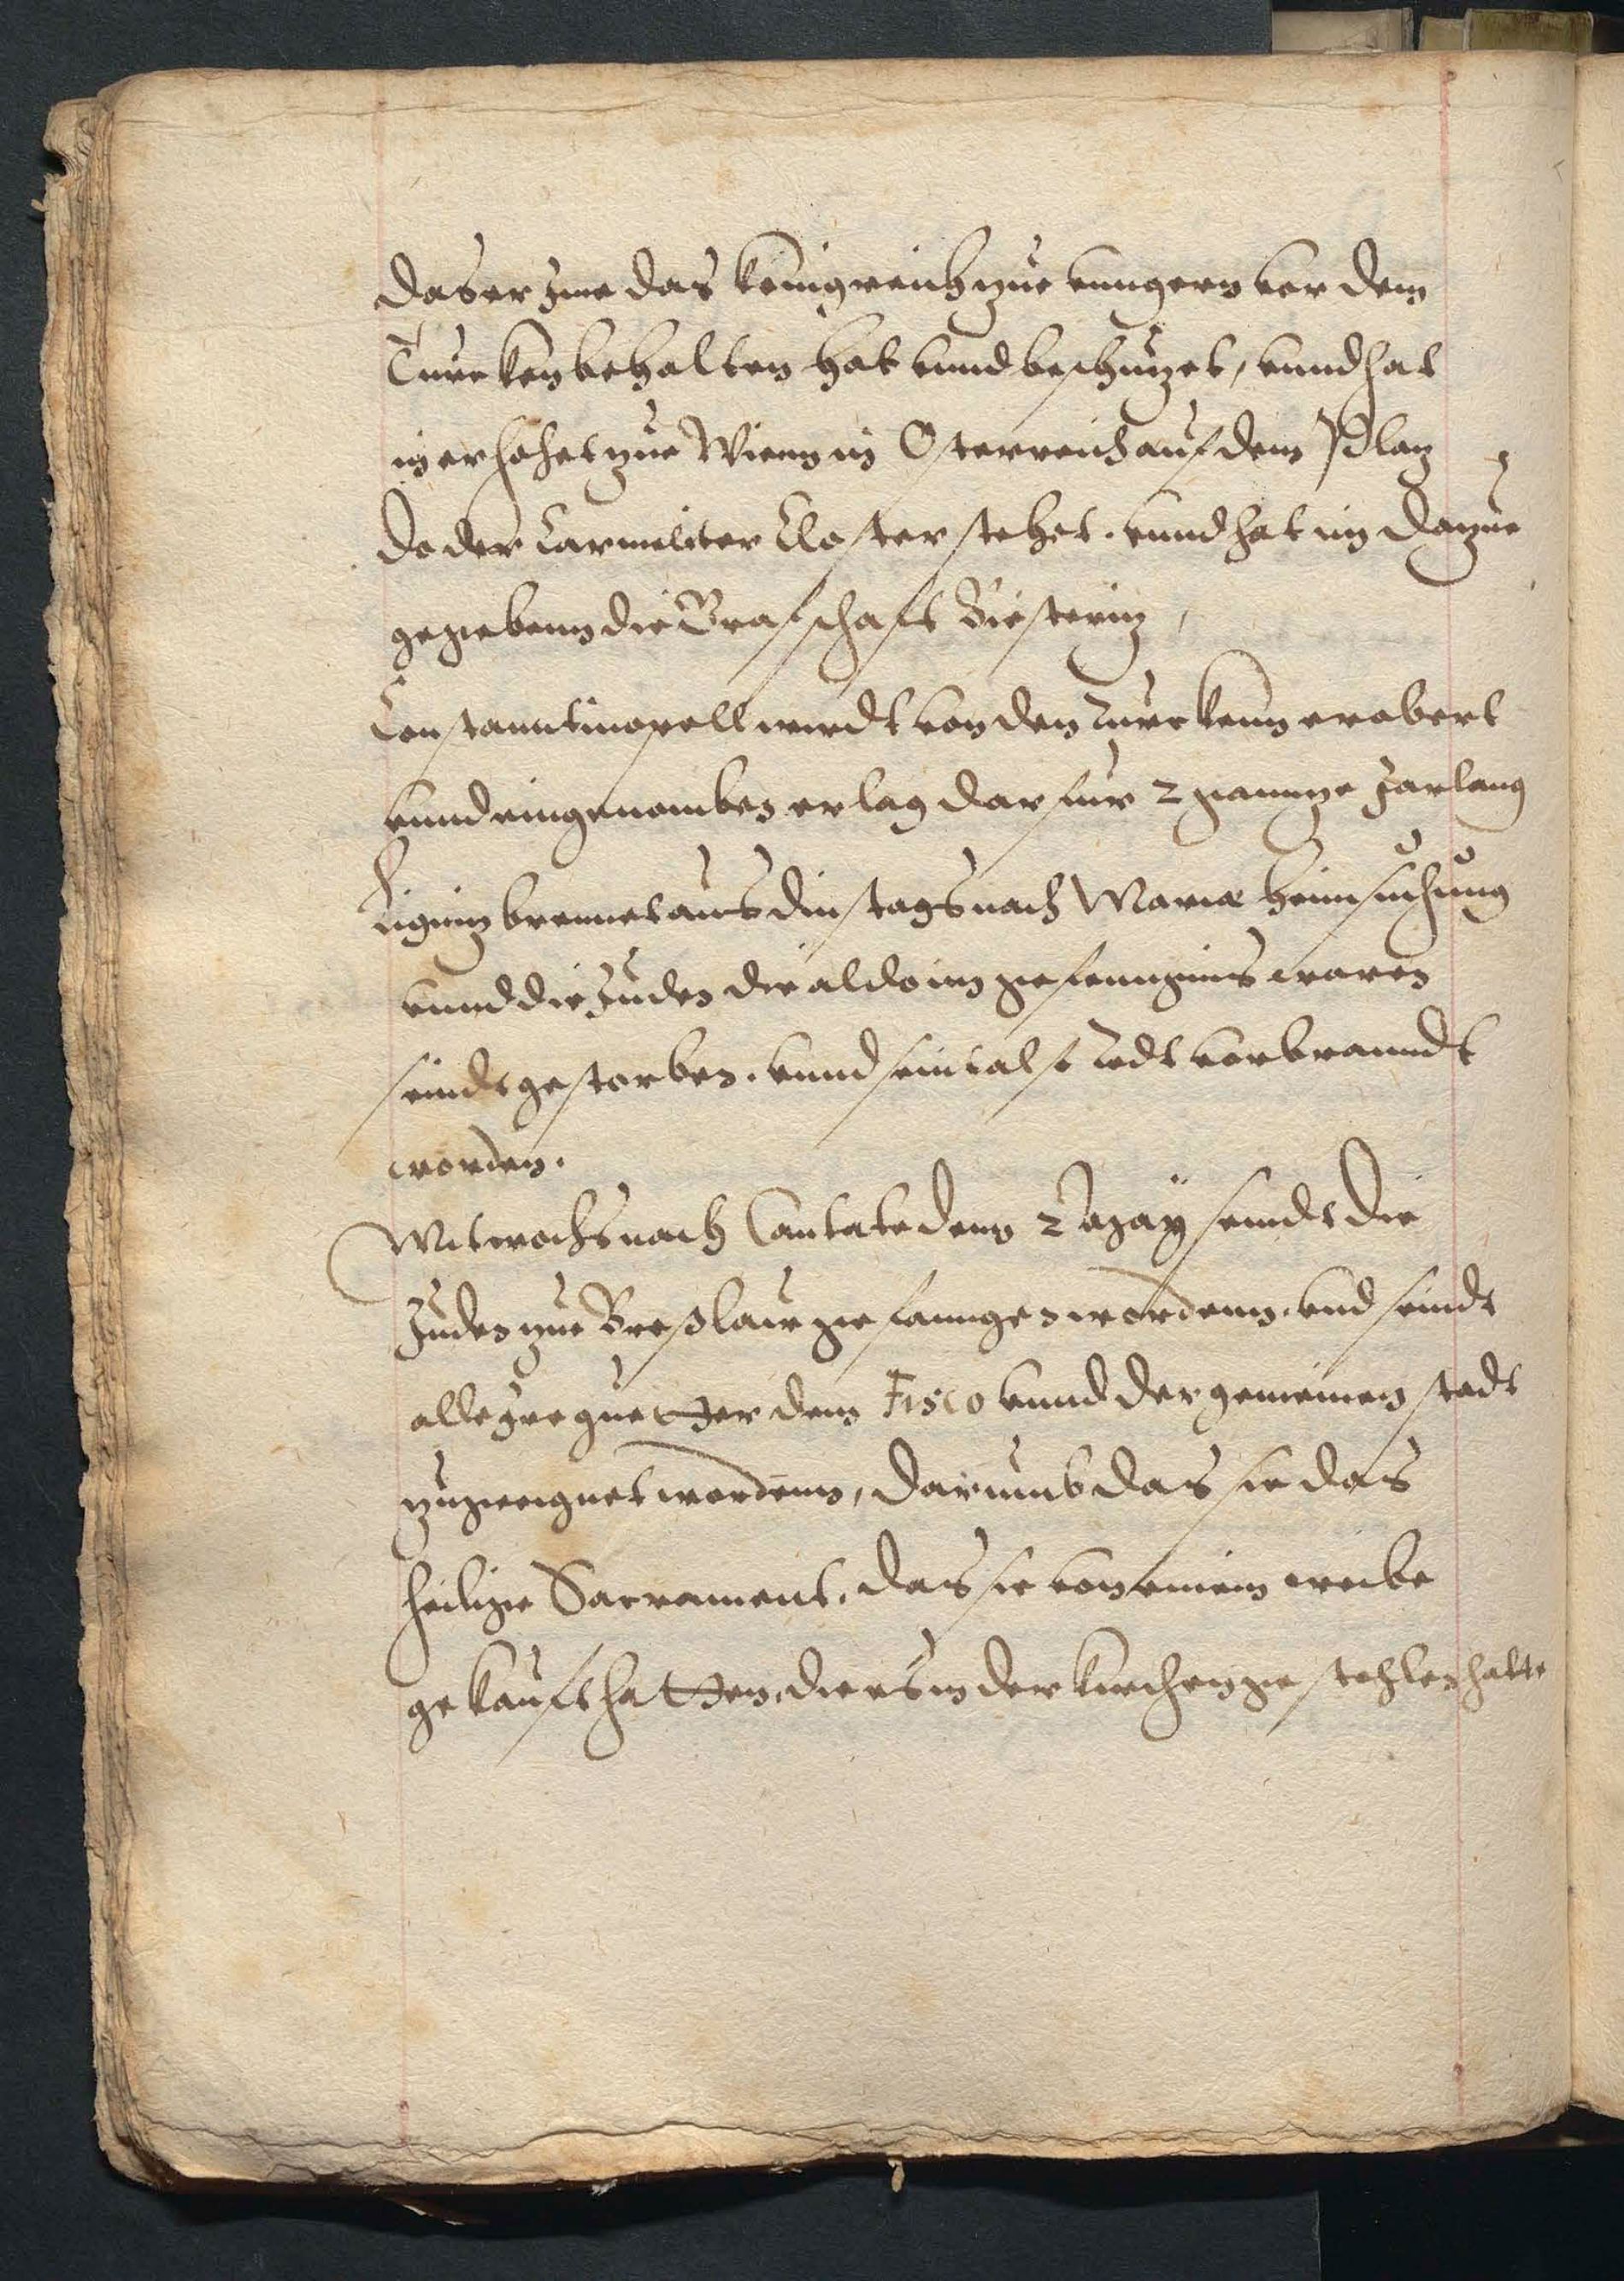 das er Jme das königreich zue vungern vor dem
Turcken behalten hat vnnd beschuzet, vnnd hat
in erhohet zue Wienn in Osterreich auf dem Plaz
do der Carmeliter Closter stehet. vnnd hat im dazue
gegebenn die Grafschaft Biesteriz,
Constanntinopell wirdt von den Turckenn erobert
vnnd eingenomben er lag darfur 2 ganntze Jar lang
Ligniz brennet aus dinstags nach Mariæ heimsuchung
vnnd die Juden die aldo im gefenngnus waren
seindt gestorben. vnnd seint also todt vorbranndt
worden.
Mitwochs nach Cantate denn 2 Maÿ seindt die
Juden zue Breßlaw gefanngen wordenn. vnd seindt
alle Jre guetter dem Fisco vnnd der gemeinen stadt
zugeeignet wordenn, darumb das sie das
heilige Sacrament, das sie von einem weibe
gekauft hatten, die es in der kirchen gestohlen hatte